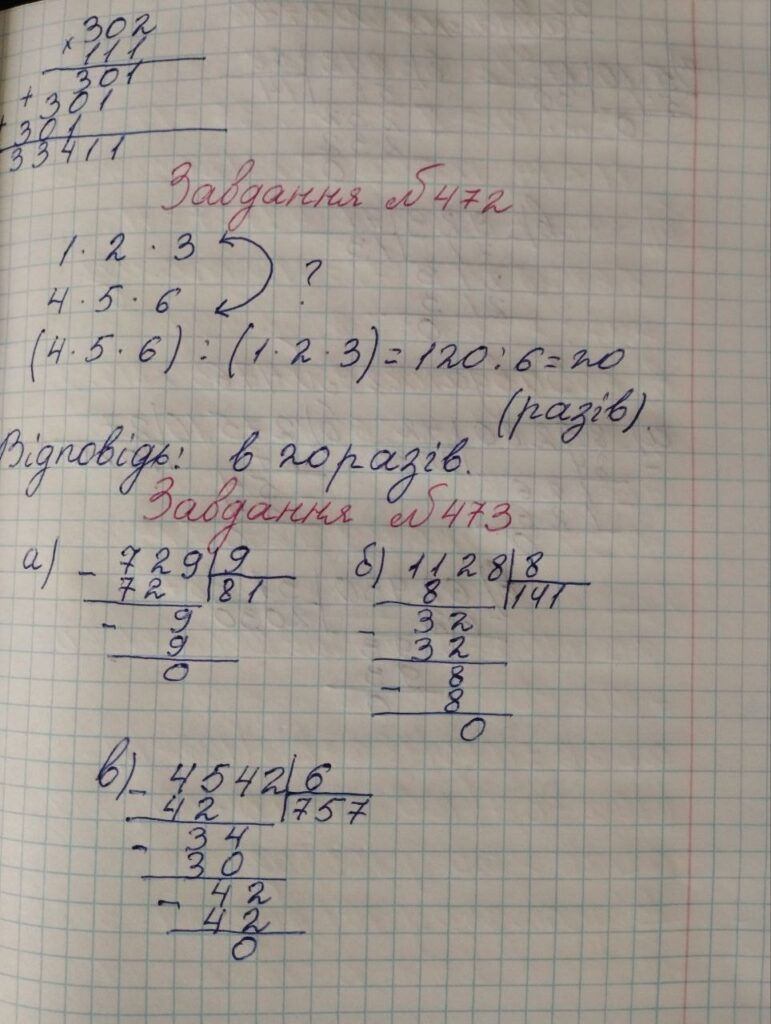 × 302
111
301
+ 301
+ 301
33411
Завдання №472
1 · 2 · 3
?
4 · 5 · 6
(4 · 5 · 6) : (1 · 2 · 3) = 120 : 6 = 20
(разів).
Відповідь: в 20 разів.
Завдання №473
а) - 729 | 9
72 | 81
- 9
9
0
б) 1128 | 8
8 | 141
- 32
32
- 8
8
0
в) - 4542 | 6
42 | 757
- 34
30
- 42
42
0